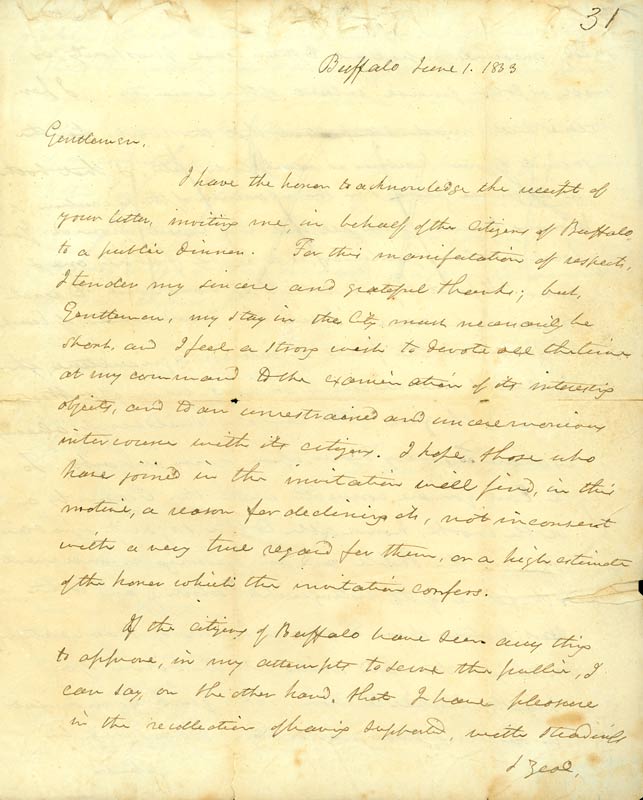 31
Buffalo June 1. 1833
Gentlemen,
I have the honor to acknowledge the receipt of
your letter, inviting me, in behalf of the Citizens of Buffalo,
to a public dinner. For this manifestation of respect,
I tender my sincere and grateful thanks; but,
Gentlemen, my stay in the City must necessarily be
short, and I feel a strong wish to devote all the time
at my command to the examination of its interesting
objects, and to an unrestrained and unceremonious
intercourse with its citizens. I hope those who
have joined in the invitation will find, in this
motive, a reason for declining it, not inconsent
with a very true regard for them, or a high estimate
of the honor which the invitation confers.
If the citizens of Buffalo have seen any thing
to approve, in my attempts to serve the public, I
can say, on the other hand, that I have pleasure
in the recollection of having supported, with steadiness
& zeal,